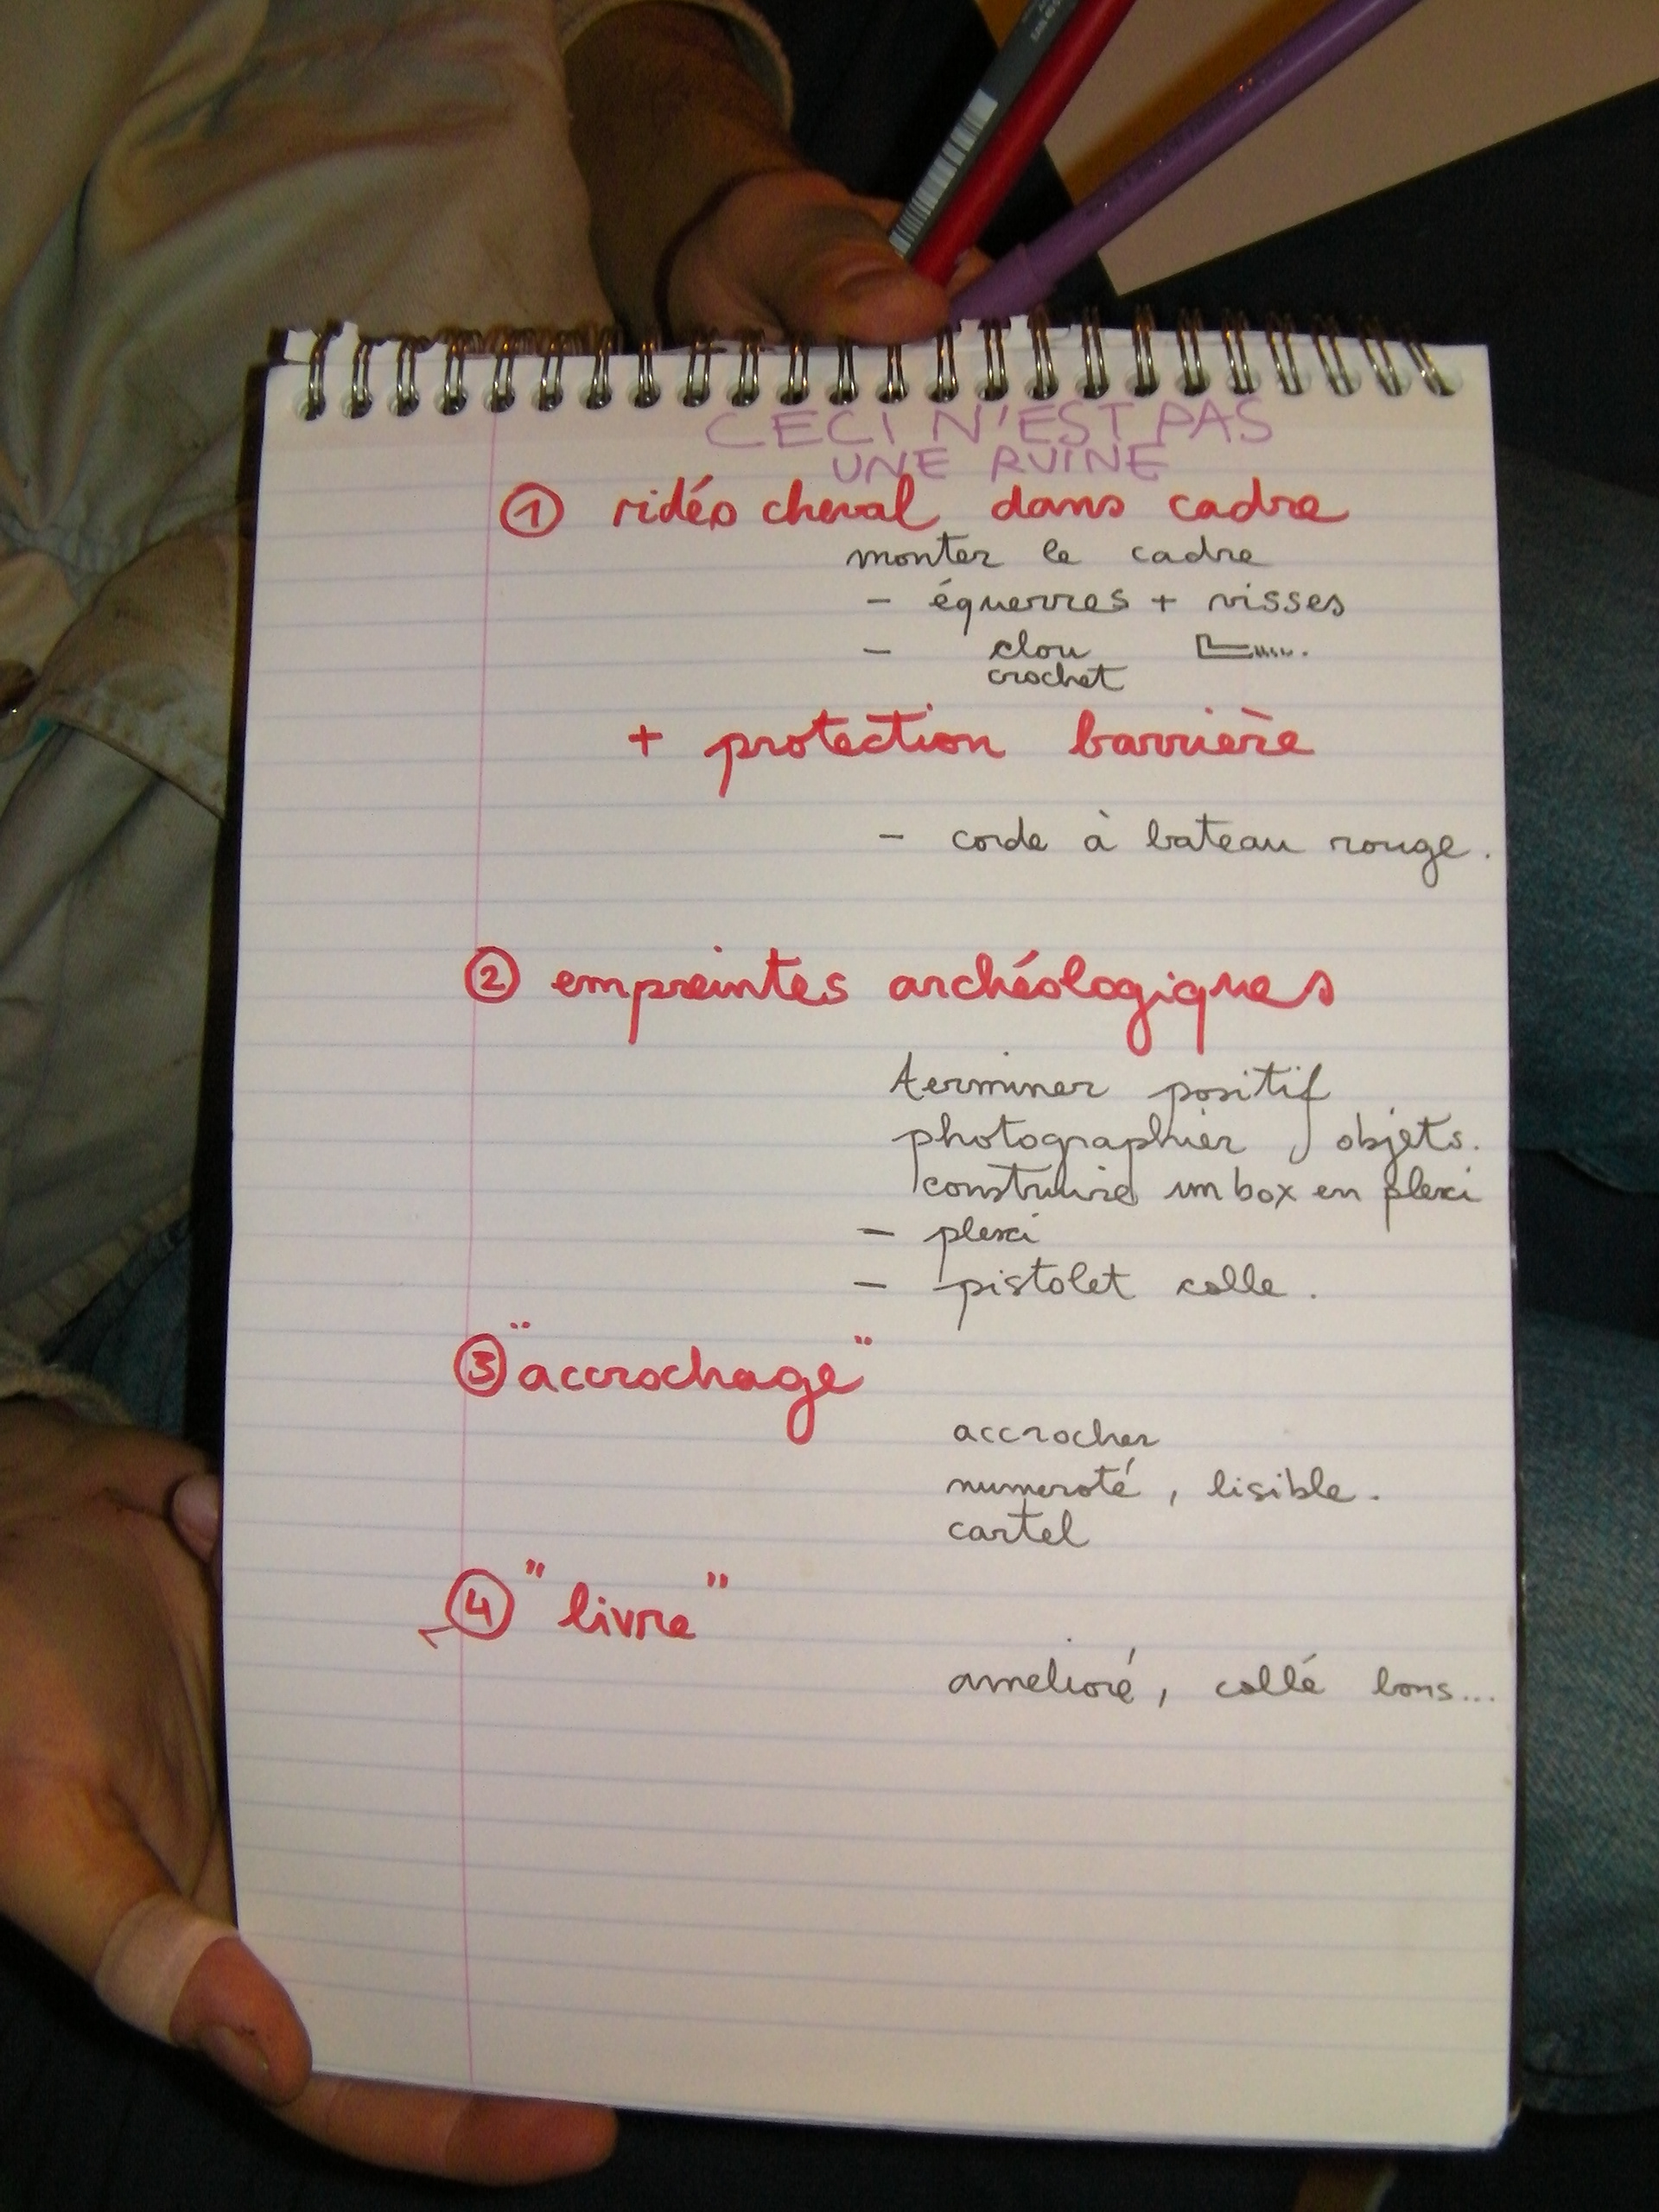 CECI N'EST PAS
UNE RUINE
① vidéo cheval dans cadre
monter le cadre
- équerres + visses
- clou
crochet
+ protection barrière
- corde à bateau rouge.
② empreintes archéologiques
terminer positif
photographier objets.
construire un box en plexi
- plexi
- pistolet colle.
③ "accrochage"
accrocher
numeroté, lisible.
cartel
④ "livre"
amelioré, collé bons...